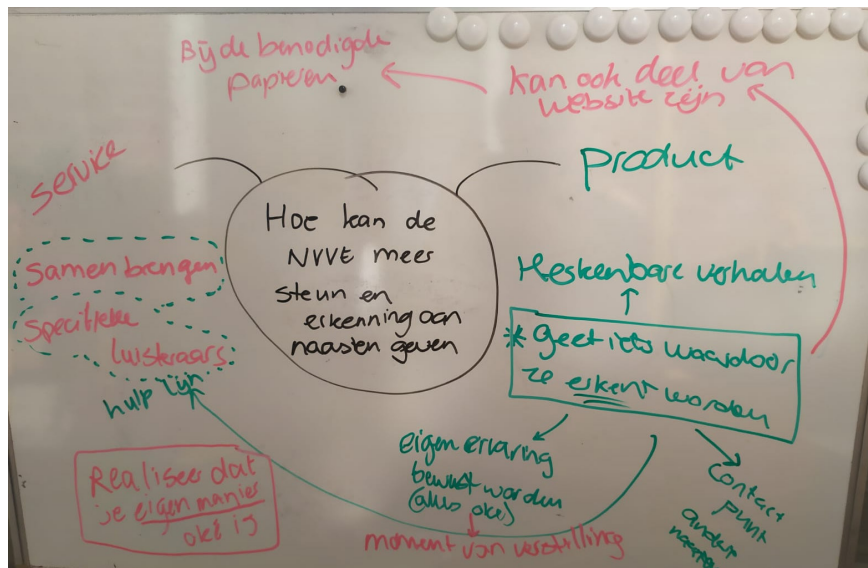 Bij de benodigde
papieren
kan ook deel van
website zijn
service
product
Hoe kan de
NVVE meer
steun en
erkenning aan
naasten geven
samenbrengen
specifieke
luisteraars
hulp lijn
Herkenbare verhalen
* geef iets waardoor
ze erkent worden
eigen ervaring
bewust worden
(alles oké)
moment van verstilling
contact
punt
ander
naasten
Realiseer dat
je eigen manier
oké is